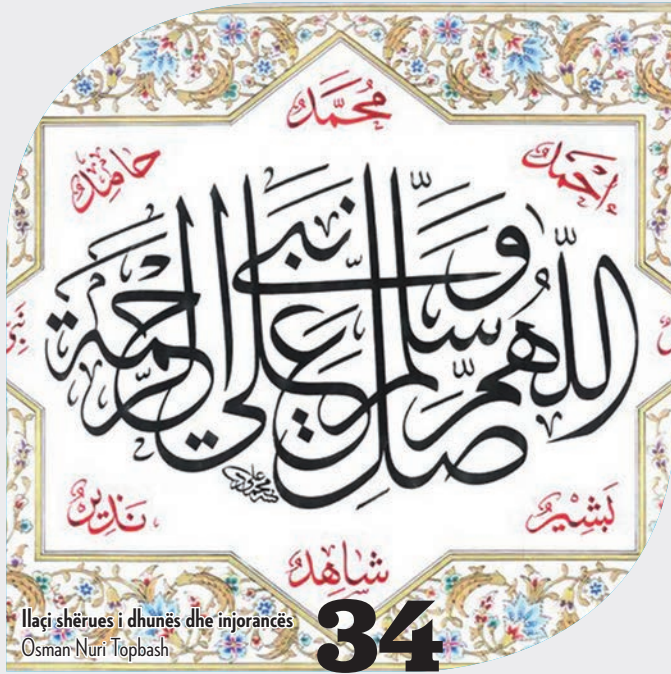 مُحَمَّدٌ
أحمد
حامد
اللّٰهُمَّ صَلِّ وَسَلِّمْ عَلَى نَبِيِّ الرَّحْمَة
بَشِيْرٌ
نَذِيْرٌ
شَاهِدٌ
Ilaçi shërues i dhunës dhe injorancës
Osman Nuri Topbash
34